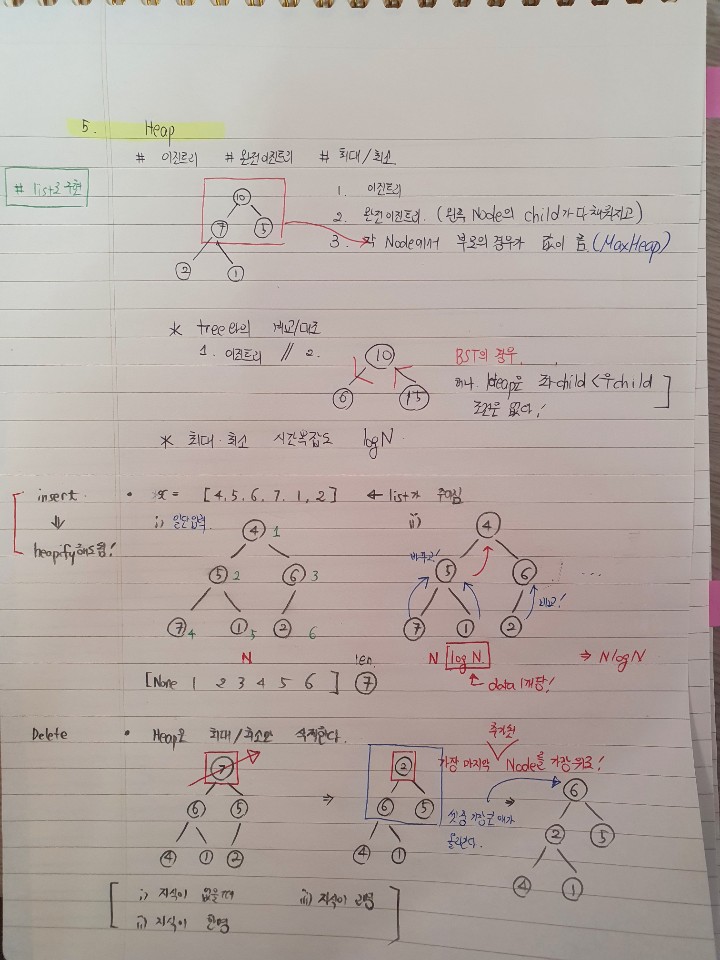 5. Heap
# 이진트리 # 완전이진트리 # 최대/최소
# list로 구현
10
7 5
2 1
1. 이진트리
2. 완전이진트리. (왼쪽 Node의 child가 다 채워지고)
3. 각 Node에서 부모의 경우가 값이 큼 (MaxHeap)
* tree와의 비교/대조
1. 이진트리 // 2.
10
6 15
BST의 경우.
하나 Heap은 좌child < 우child
조건은 없다!
* 최대·최소 시간복잡도 logN
insert
⇓
heapify해도됨!
• x = [4, 5, 6, 7, 1, 2] ← list가 주어짐
i) 일단입력.
4 1
5 2 6 3
7 4 1 5 2 6
N
[None 1 2 3 4 5 6] len 7
ii)
4
바꾸고! 5 6 ...
7 1 2 비교!
N log N. ⇒ NlogN
data 1개당!
Delete • Heap은 최대/최소만 삭제한다.
7
6 5
4 1 2
⇒
2
6 5
4 1
추가된
가장 마지막 Node를 가장 위로!
셋중 가장큰애가
올라간다.
⇒
6
2 5
4 1
i) 자식이 없을때 iii) 자식이 2명
ii) 자식이 한명